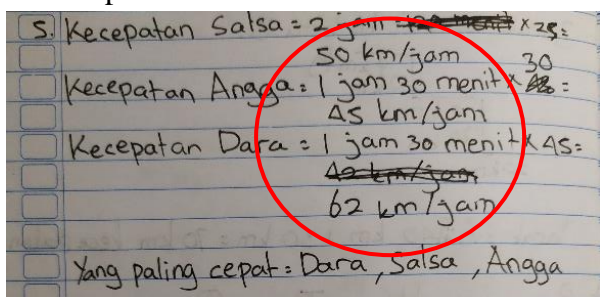 5. Kecepatan Salsa = 2 jam = x 25 =
50 km/jam
Kecepatan Angga = 1 jam 30 menit x 30 =
45 km/jam
Kecepatan Dara = 1 jam 30 menit x 45 =
42 km/jam
62 km/jam
Yang paling cepat = Dara, Salsa, Angga